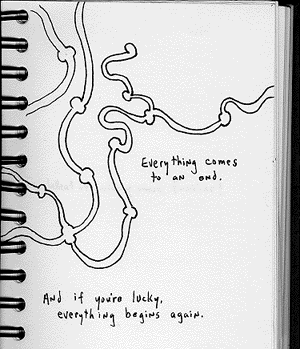 Everything comes
to an end.
And if you're lucky,
everything begins again.